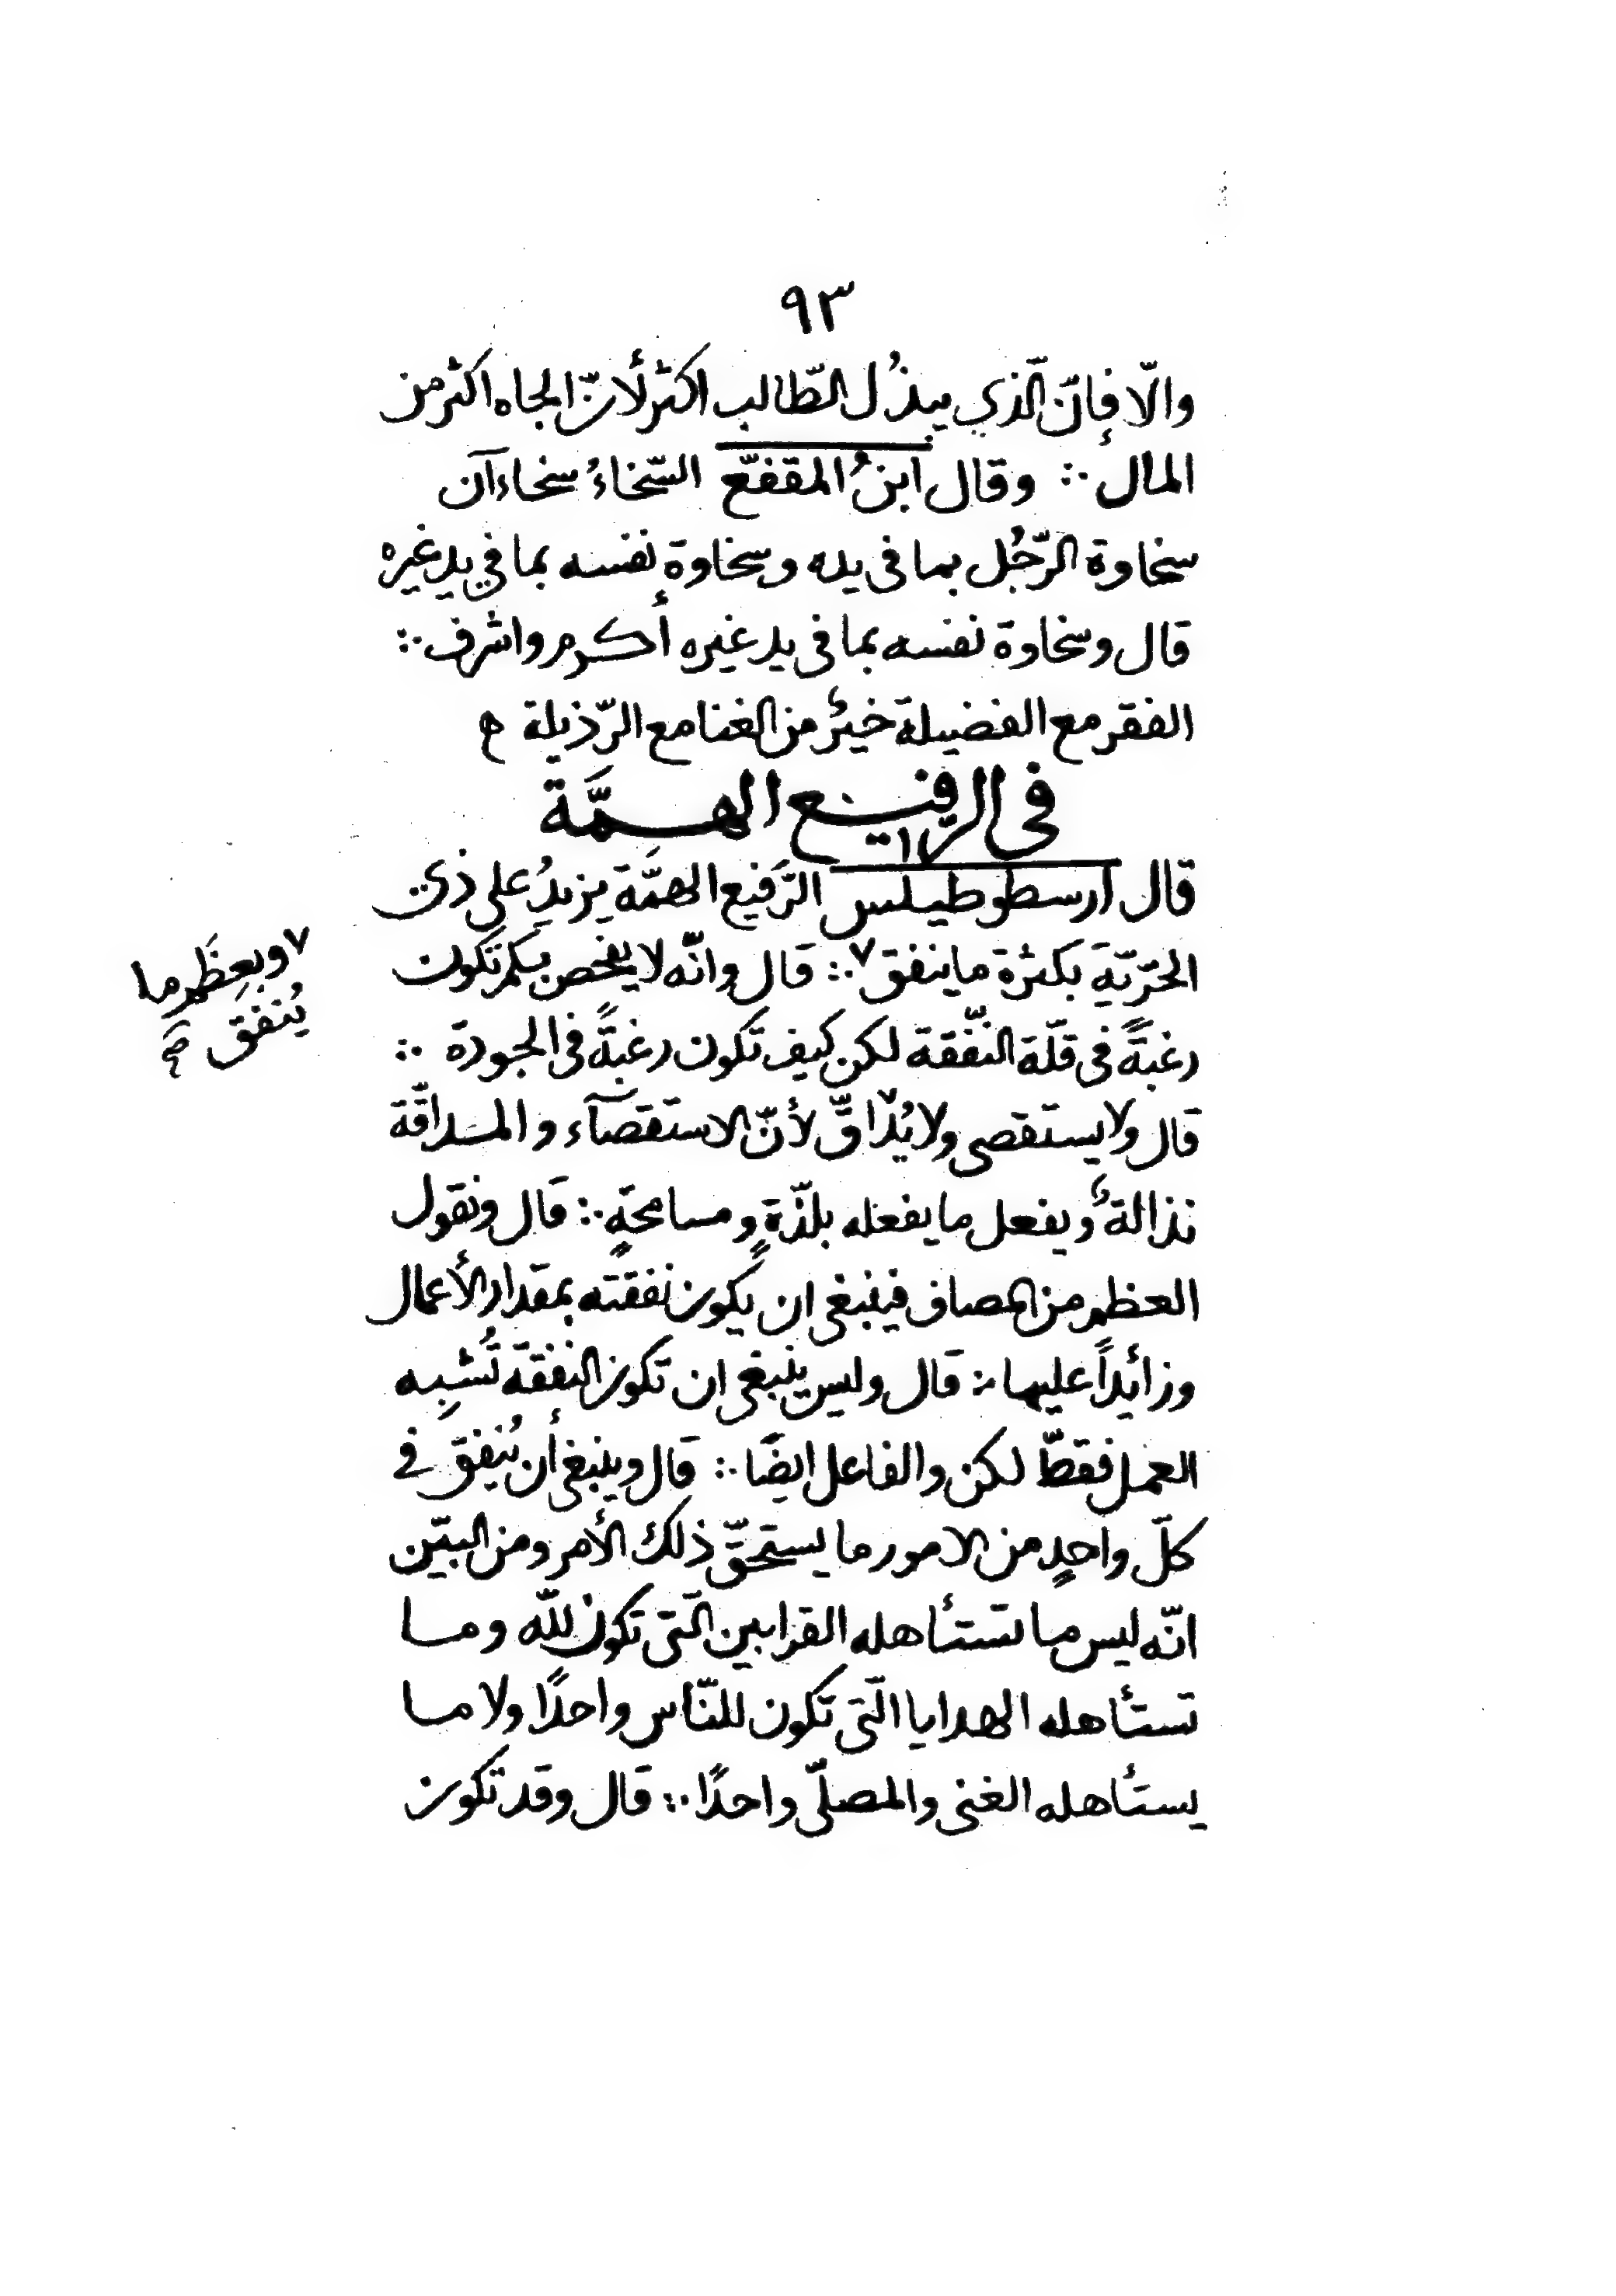 ٩٣
والّا فإنّ الّذي يبذُل الطّالب اكثر لأنّ الجاه اكثر من
المال ∴ وقال ابنُ المقفّع السّخاءُ سخاءآن
سخاوة الرّجُل بما فى يده وسخاوة نفسه بما في يد غيره
قال وسخاوة نفسه بما فى يد غيره أكرم واشرف ∴
الفقر مع الفضيلة خيرٌ من الغنا مع الرّذيلة ه
فى الرّفيع الهمَّة
قال ارسطوطيلس الرَّفيع الهمَّة يزيدُ على ذي
الحرّيّةِ بكثرة ما ينفق ٧ ∴ قال وانّه لا يفحص بكم تكون
رغبةً فى قلّة النّفقة لكن كيف تكون رغبةً فى الجودة ∴
قال ولا يستقصى ولا يُدَاقّ لأنّ الاستقصآء والمداقّة
نذالةٌ ويفعل ما يفعله بلذّةٍ ومسامحةٍ ∴ قال ونقول
العظم من المصاف فينبغى ان يكون نفقته بمقدار الأعمال
وزائداً عليها ∴ قال وليس ينبغى ان تكون النفقة تُشبِه
العمل فقطّ لكن والفاعل ايضًا ∴ قال وينبغى أن يُنفِقَ في
كلّ واحدٍ من الامور ما يستحقّ ذلك الأمر ومن البيّن
انّه ليس ما تستأهله القرابين الّتى تكون للّه وما
تستأهله الهدايا الّتى تكون للنّاس واحدًا ولا ما
يستأهله الغنى والمصلّى واحدًا ∴ قال وقد تكون
٧ وبعِظَم ما
يُنفق صح